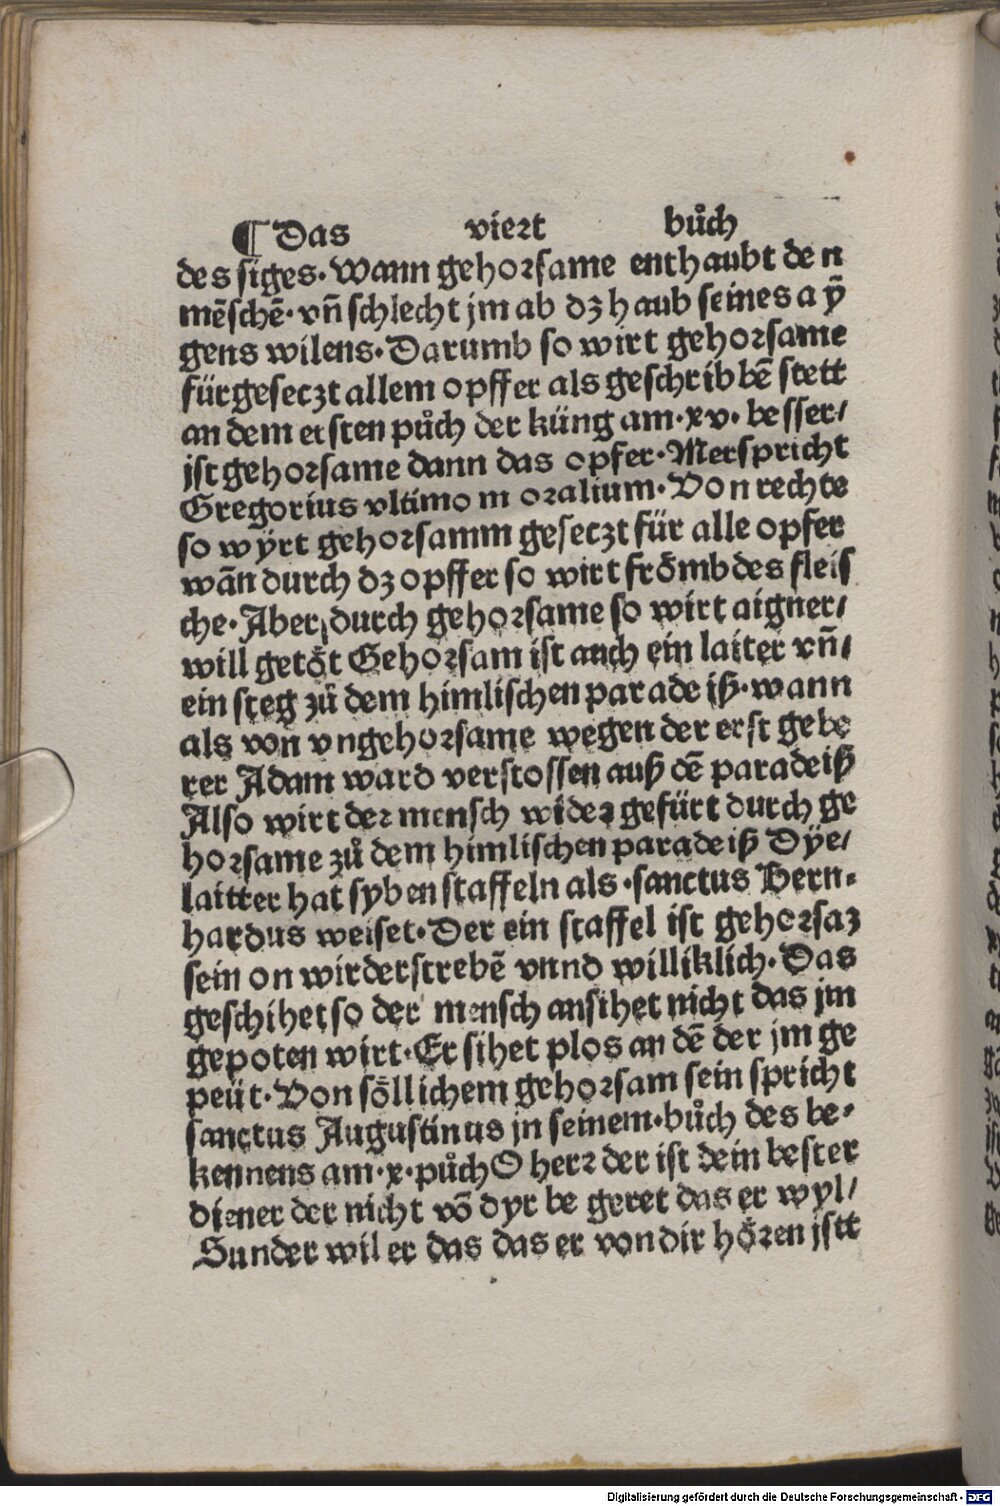 ¶ Das viert bůch
des siges. Wann gehorsame enthaubt den
mēschē. vn̄ schlecht jm ab dz haub seines aÿ
gens wilens. Darumb so wirt gehorsame
fürgeseczt allem opffer als geschribbē stett
an dem ersten půch der küng am. xv. besser/
jst gehorsame dann das opfer. Merspricht
Gregorius vltimo moralium. Von rechte
so wÿrt gehorsamm geseczt für alle opfer
wān durch dz opffer so wirt frömb des fleis
che. Aber durch gehorsame so wirt aigner/
will getöt Gehorsam ist auch ein laiter vn̄/
ein steg zů dem himlischen paradeiß. wann
als von vngehorsame wegen der erst gebe
rer Adam ward verstossen auß dē paradeiß
Also wirt der mensch wider gefürt durch ge
horsame zů dem himlischen paradeiß Dÿe/
laitter hat syben staffeln als. sanctus Bern-
hardus weiset. Der ein staffel ist gehorsaz
sein on wirderstrebē vnnd williklich. Das
geschihet so der mensch ansihet nicht das jm
gepoten wirt. Er sihet plos an dē der jm ge
peüt. Von söllichem gehorsam sein spricht
sanctus Augustinus jn seinem. bůch des be-
kennens am. x. půch O herr der ist dein bester
diener der nicht vō dyr begeret das er wyl/
Sunder wil er das das er von dir hören jstt
Digitalisierung gefördert durch die Deutsche Forschungsgemeinschaft - DFG